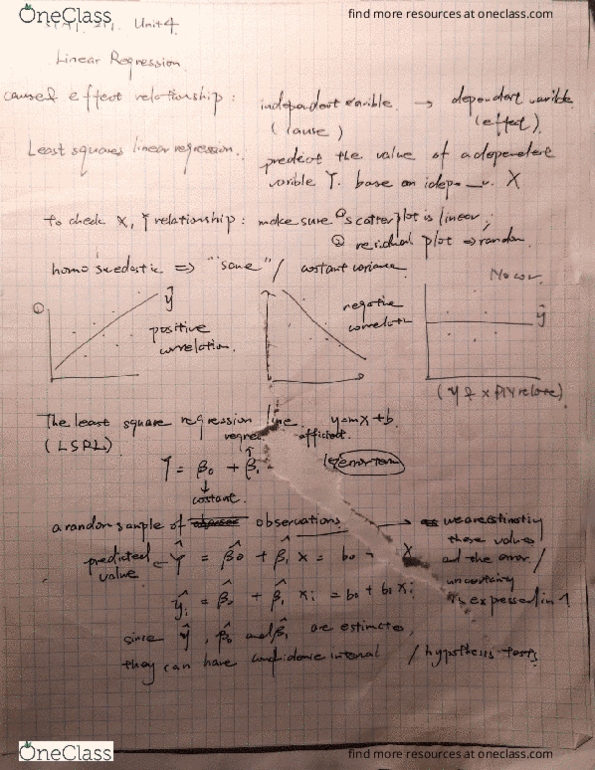 OneClass
find more resources at oneclass.com
Unit 4.
Linear Regression.
caused effect relationship : independent varible. → dependent varible
(cause) (effect).
Least squares linear regression. predict the value of a dependent
varible Y. base on X
to check X, Y relationship : make sure ① scatterplot is linear,
② residual plot ⇒ random.
homo scedastic ⇒ "same" / constant variance.
① ŷ
positive
correlation.
negative
correlation
No cor.
ŷ
The least square regression line. y=mx+b.
(LSRL)
Y = β₀ + β₁ error term
↓
constant.
a random sample of observations. → we are estimating
these values
and the error /
predicted value ← Ŷ = β̂₀ + β̂₁ x = b₀ X
uncertainty
is expressed in
ŷi = β̂₀ + β̂₁ xi = b₀ + b₁ xi
since ŷ, β̂₀ and β̂₁ are estimates,
they can have confidence interval / hypothesis tests
OneClass
find more resources at oneclass.com